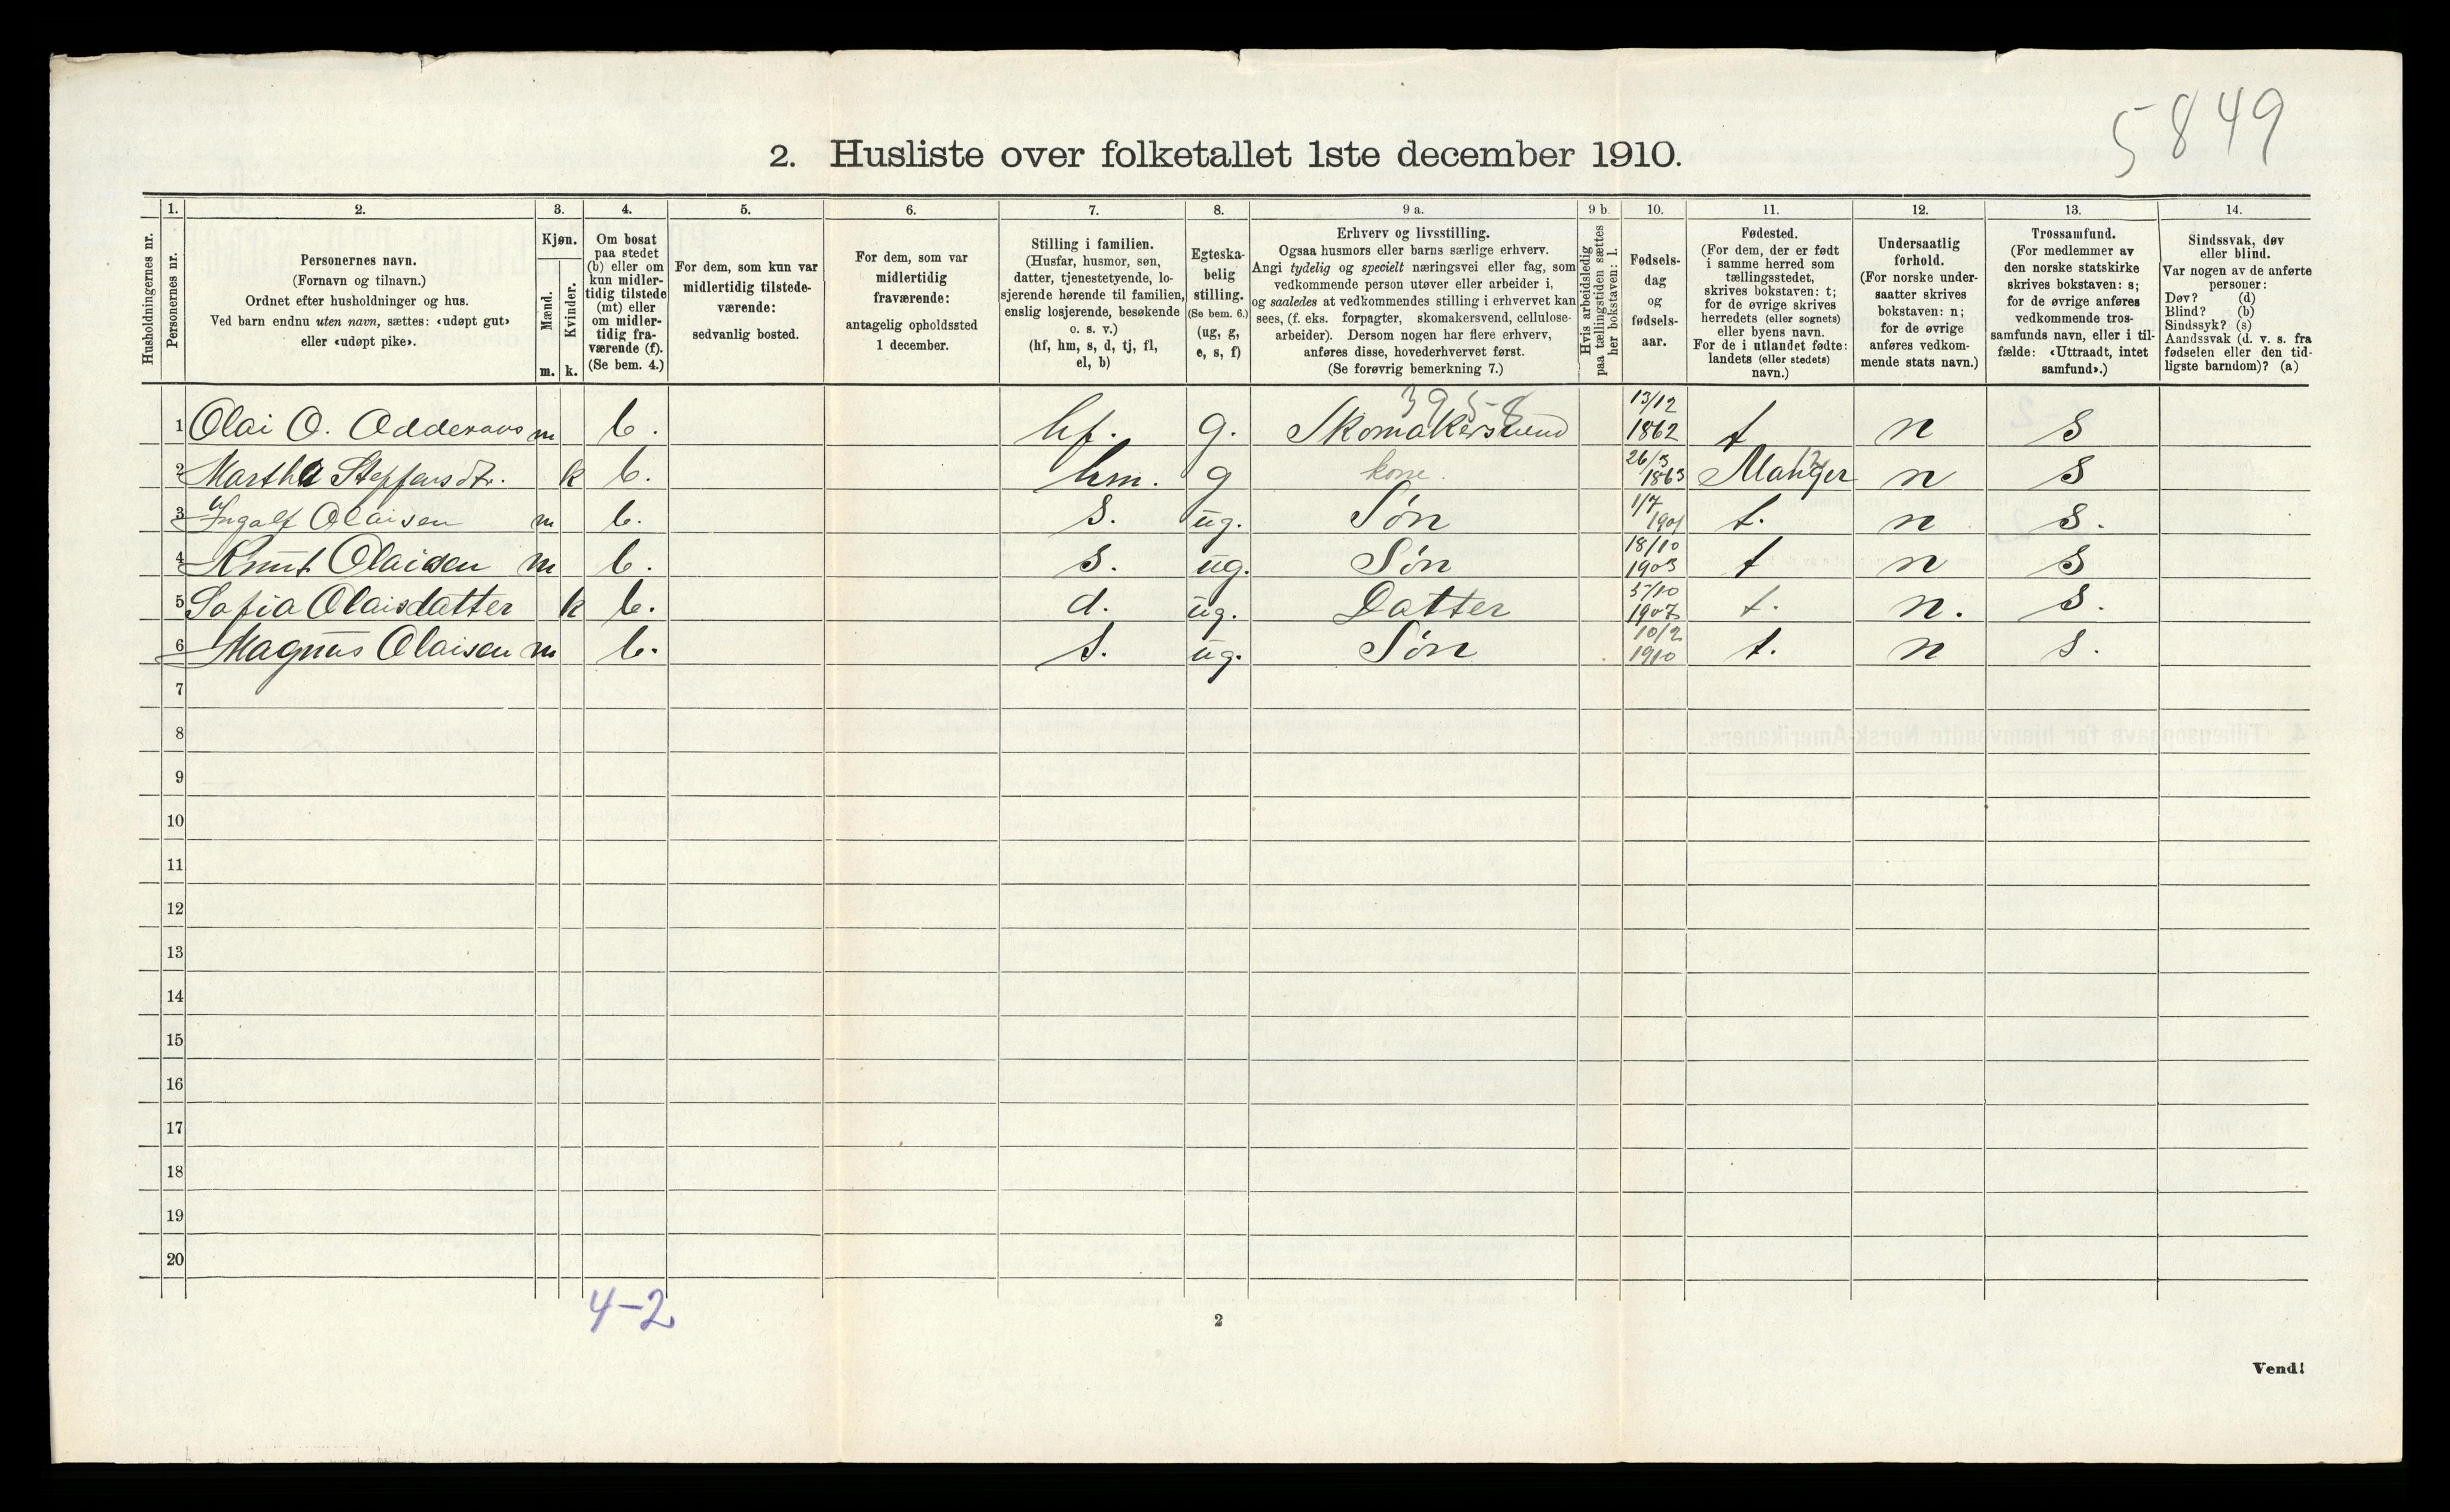 5849
2. Husliste over folketallet 1ste december 1910.
Husholdningernes nr.
1.
Personernes nr.
2.
Personernes navn.
(Fornavn og tilnavn.)
Ordnet efter husholdninger og hus.
Ved barn endnu uten navn, sættes: «udøpt gut»
eller «udøpt pike».
3.
Kjøn.
Mænd.
Kvinder.
m. k.
4.
Om bosat
paa stedet
(b) eller om
kun midler-
tidig tilstede
(mt) eller
om midler-
tidig fra-
værende (f).
(Se bem. 4.)
5.
For dem, som kun var
midlertidig tilstede-
værende:
sedvanlig bosted.
6.
For dem, som var
midlertidig
fraværende:
antagelig opholdssted
1 december.
7.
Stilling i familien.
(Husfar, husmor, søn,
datter, tjenestetyende, lo-
sjerende hørende til familien,
enslig losjerende, besøkende
o. s. v.)
(hf, hm, s, d, tj, fl,
el, b)
8.
Egteska-
belig
stilling.
(Se bem. 6.)
(ug, g,
e, s, f)
9 a.
Erhverv og livsstilling.
Ogsaa husmors eller barns særlige erhverv.
Angi tydelig og specielt næringsvei eller fag, som
vedkommende person utøver eller arbeider i,
og saaledes at vedkommendes stilling i erhvervet kan
sees, (f. eks. forpagter, skomakersvend, cellulose-
arbeider). Dersom nogen har flere erhverv,
anføres disse, hovederhvervet først.
(Se forøvrig bemerkning 7.)
9 b.
Hvis arbeidsledig
paa tællingstiden sættes
her bokstaven: l.
10.
Fødsels-
dag
og
fødsels-
aar.
11.
Fødested.
(For dem, der er født
i samme herred som
tællingsstedet,
skrives bokstaven: t;
for de øvrige skrives
herredets (eller sognets)
eller byens navn.
For de i utlandet fødte:
landets (eller stedets)
navn.)
12.
Undersaatlig
forhold.
(For norske under-
saatter skrives
bokstaven: n;
for de øvrige
anføres vedkom-
mende stats navn.)
13.
Trossamfund.
(For medlemmer av
den norske statskirke
skrives bokstaven: s;
for de øvrige anføres
vedkommende tros-
samfunds navn, eller i til-
fælde: «Uttraadt, intet
samfund».)
14.
Sindssvak, døv
eller blind.
Var nogen av de anførte
personer:
Døv? (d)
Blind? (b)
Sindssyk? (s)
Aandssvak (d. v. s. fra
fødselen eller den tid-
ligste barndom)? (a)
3958
1 Olai O. m b. hf. g. Skomakersvend 13/12 1862 t n s
2 Martha Steffensdtr. k b. hm. g kone. 26/3 1863 Manger n s
3 Ingolf Olaisen m b. s. ug. Søn 1/7 1901 t. n s.
4 Knut Olaisen m b. s. ug. Søn 18/10 1903 t n s
5 Sofia Olaisdatter k b. d. ug. Datter 5/10 1907 t. n. s.
6 Magnus Olaisen m b. s. ug. Søn 10/2 1910 t. n s.
7
8
9
10
11
12
13
14
15
16
17
18
19
20
4-2
2
Vend!